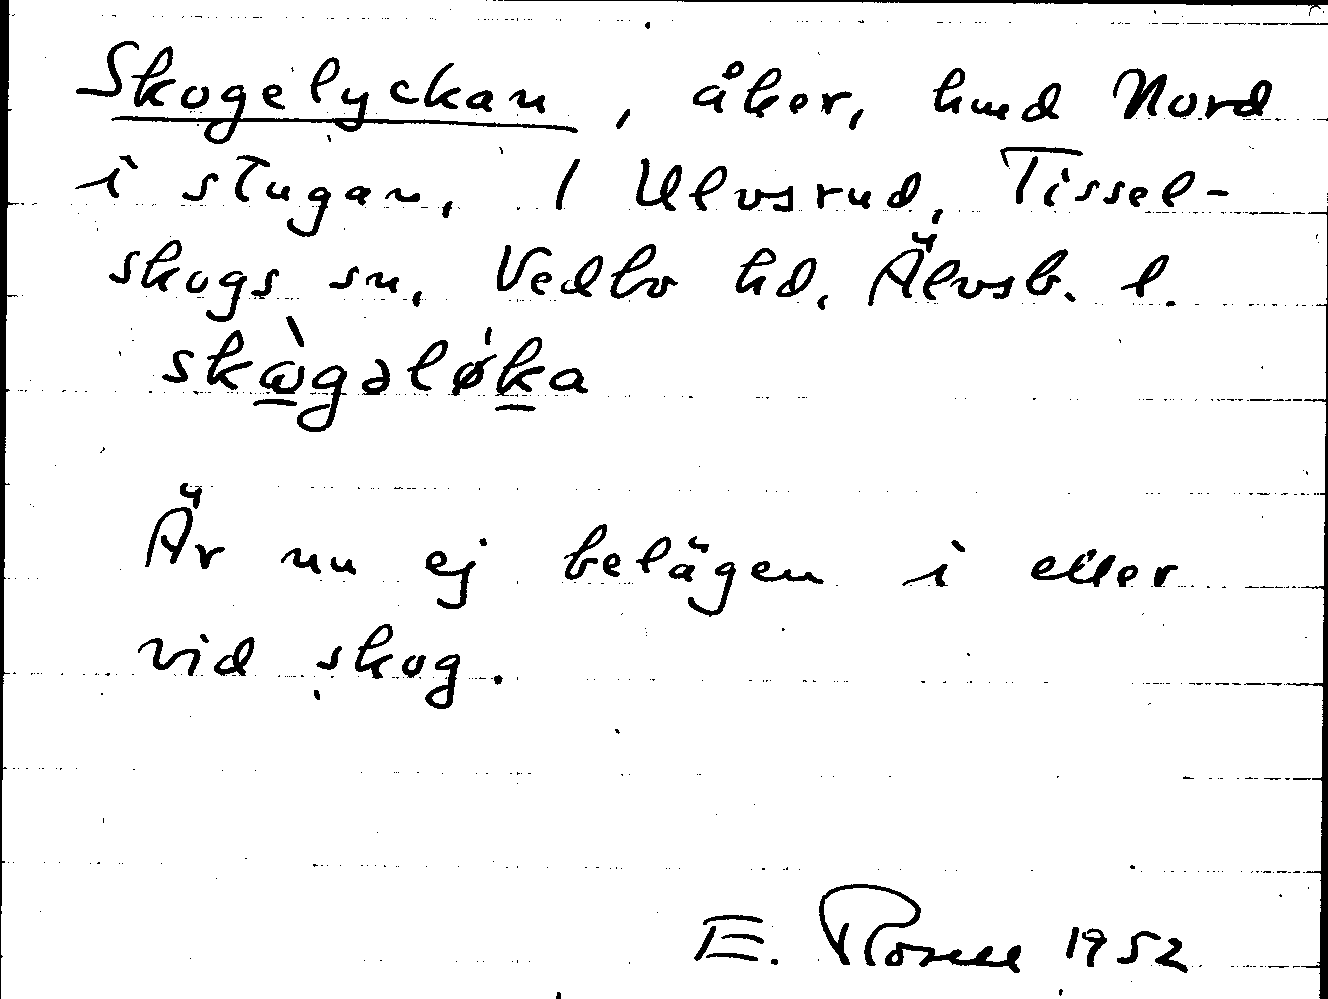 Skogelyckan, åker, hmd Nord
i stugan, 1 Ulvsrud, Tissel-
skogs sn, Vedbo hd, Älvsb. l.
skὼgəlø̍ka
Är nu ej belägen i eller
vid skog.
E. Rosell 1952